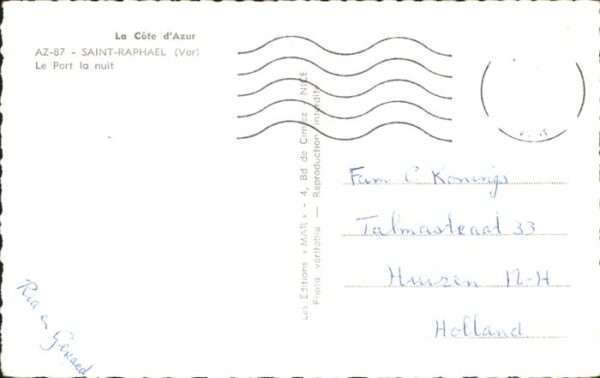 La Côte d'Azur
AZ-87 - SAINT-RAPHAEL (Var)
Le Port la nuit
Les Editions « MAR » - 4, Bd de Cimiez - NICE
Photo véritable — Reproduction interdite
Fam C Konings
Talmastraat 33
Huizen N-H
Holland
Ria en Gerard